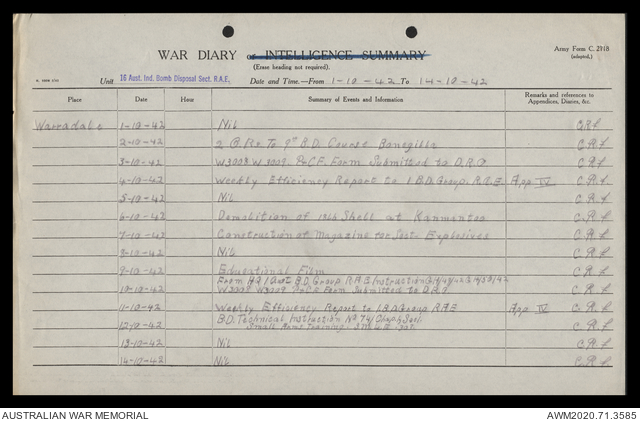 WAR DIARY or INTELLIGENCE SUMMARY
(Erase heading not required).
Army Form C. 2118
(adapted.)
Unit 16 Aust. Ind. Bomb Disposal Sect. R.A.E. Date and Time.—From 1-10-42 To 14-10-42
Place Date Hour Summary of Events and Information Remarks and references to Appendices, Diaries, &c.
Warradale 1-10-42 Nil C.R.L
2-10-42 2 O.Rs. To 9th B.D. Course Bonegilla C.R.L
3-10-42 W3008 W3009 Submitted to D.R.O C.R.L
4-10-42 Weekly Efficiency Report to 1 B.D. Group. R.A.E App IV C.R.L
5-10-42 Nil C.R.L
6-10-42 Demolition of Shell at Kanmantoo C.R.L
7-10-42 Construction of Magazine for Explosives C.R.L
8-10-42 Nil C.R.L
9-10-42 Educational Film C.R.L
From HQ 1 Aust B.D. Group R.A.E Instruction
10-10-42 W3008 W3009 Form Submitted to D.R.O C.R.L
11-10-42 Weekly Efficiency Report to 1 B.D Group R A E App IV C.R.L
B.D. Technical Instruction No 74
12-10-42 Small Arms Training. C.R.L
13-10-42 Nil C.R.L
14-10-42 Nil C.R.L
AUSTRALIAN WAR MEMORIAL
AWM2020.71.3585